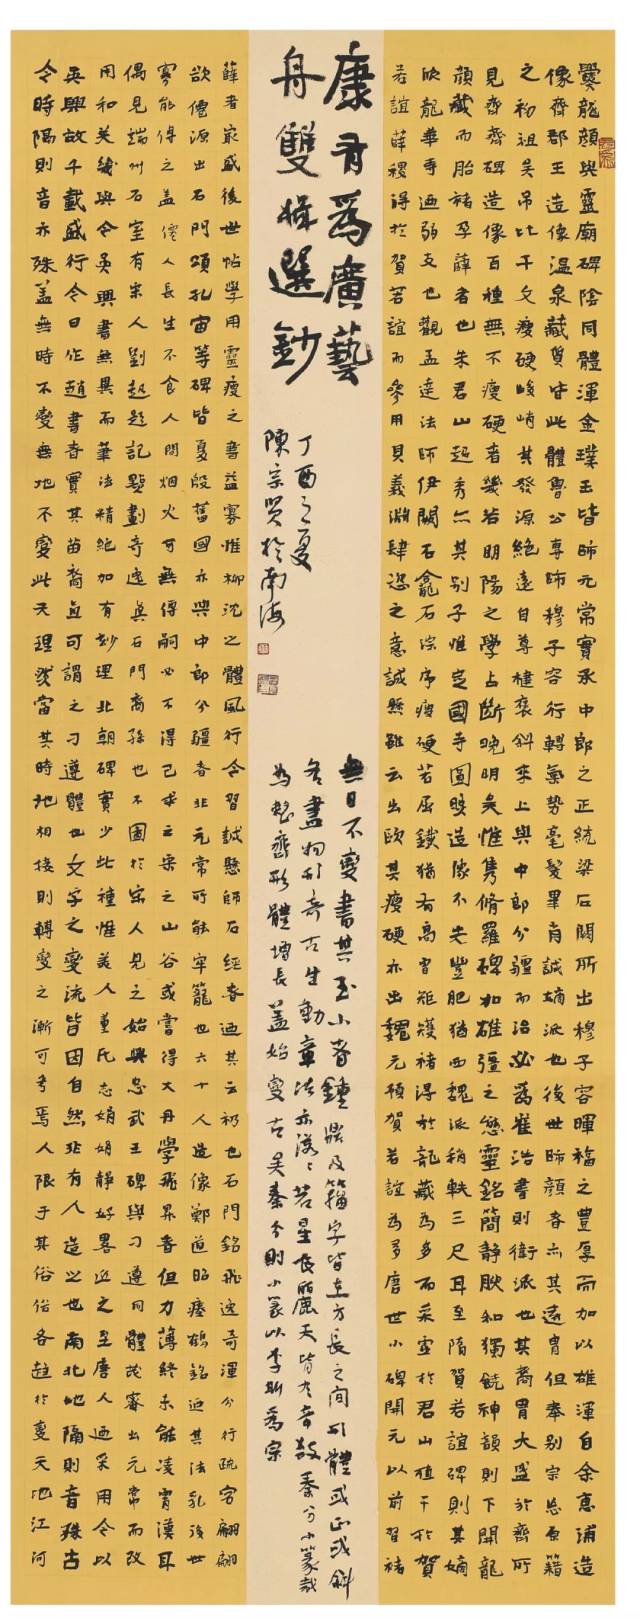 爨龍顏與靈廟碑陰同體渾金璞玉皆師元常實承中郎之正統梁石闕所出穆子容暉福之豐厚而加以雄渾自余惠浦造
像齊郡王造像溫泉藏質皆此體魯公專師穆子容行轉氣勢毫髮畢肖誠嫡派也後世師顏者亦其遠冑但奉別宗忘原籍
之初祖吳吊比干文瘦硬峻峭其發源絕遠自尊楗褒斜來上與中郎分疆而治必爲崔浩書則衛派也其裔冑大盛於齊所
見齊齊碑造像百種無不瘦硬者幾若明陽之學占斷晚明矣惟雋脩羅碑加雄彊之態靈銘簡靜腴和獨饒神韻則下開龍
顏藏而胎褚孕薛者也朱君山超秀亦其別子惟定國寺圓照造像不失豐肥猶西魏派稍軼三尺耳至隋賀若誼碑則其嫡
欣龍華寺迺弱支也觀孟達法師伊闕石龕石淙序瘦硬若屈鐵猶有高曾矩矱褚得於龍藏為多而采虛於君山植干於賀
若誼薛稷得於賀若誼而參用貝義淵肆恣之意誠懸雖云出歐其瘦硬亦出魏元預賀若誼為多唐世小碑開元以前習褚
康有爲廣藝
舟雙楫選鈔
丁酉之夏
陳宗賢於南海
薛者最盛後世帖學用靈瘦之書益寡惟柳沈之體風行今習誠懸師石經者迺其云礽也石門銘飛逸奇渾分行疏宕翩翩
欲僊源出石門頌孔宙等碑皆夏殷舊國亦與中郎分疆者非元常所能牢籠也六十人造像鄭道昭瘞鶴銘迺其法乳後世
寡能傳之蓋僊人長生不食人間烟火可無傳嗣必不得已求之宋之山谷或嘗得大丹學飛昇者但力薄終未能凌霄漢耳
偶見端州石室有宋人劉起題記點劃奇逸真石門裔孫也不圖於宋人見之始興忠武王碑與刁遵同體茂審出元常而改
用和美幾與今吳興書無異而筆法精絕加有妙理北朝碑實少此種惟美人董氏志娟娟靜好畧近之至唐人迺采用今以
吳興故千載盛行今日作趙書者實其苗裔直可謂之刁遵體也文字之變流皆因自然非有人造之也南北地隔則音殊古
今時隔則音亦殊蓋無時不變無地不變此天理然當其時地相接則轉變之漸可考焉人限于其俗俗各趨於變天地江河
無日不變書其至小者鍾鼎及籀字皆在方長之間形體或正或斜
各盡物形奇古生動章法亦落落若星辰麗天皆有奇致秦分小篆裁
為整齊形體增長蓋始變古矣秦分則小篆以李斯爲宗